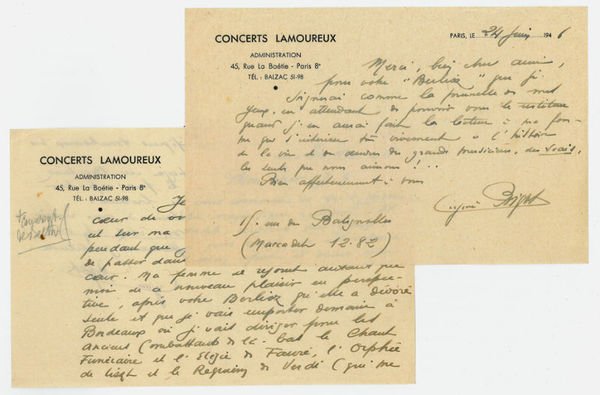 CONCERTS LAMOUREUX
ADMINISTRATION
45, Rue La Boëtie - Paris 8e
TÉL.: BALZAC 51-98
PARIS, LE 24 Juin 1946
Merci, bien cher ami,
pour votre "Berlioz" que je
soignerai comme la prunelle de mes
yeux, en attendant de pouvoir vous le restituer
quand j'en aurai fait la lecture à ma femme
que s'intéresse très vivement à l'histoire
de la vie et des œuvres des grands musiciens, des vrais,
les seuls que nous aimons ! ..
Bien affectueusement à vous
Eugène Bigot
15, rue des Batignolles
(Marcadet 12.82)
CONCERTS LAMOUREUX
ADMINISTRATION
45, Rue La Boëtie - Paris 8e
TÉL.: BALZAC 51-98
Je
cœur de
et sur ma
pendant que
de passer dans
cœur. Ma femme se réjouit autant que
moi de ce nouveau plaisir en perspec-
tive, après votre Berlioz qu'elle a dévoré
seule et que je vais emporter demain à
Bordeaux où je vais diriger pour les
Anciens Combattants de là-bas le Chant
Funéraire et l'Elégie de Fauré, l'Orphée
de Liszt et le Requiem de Verdi (qui me